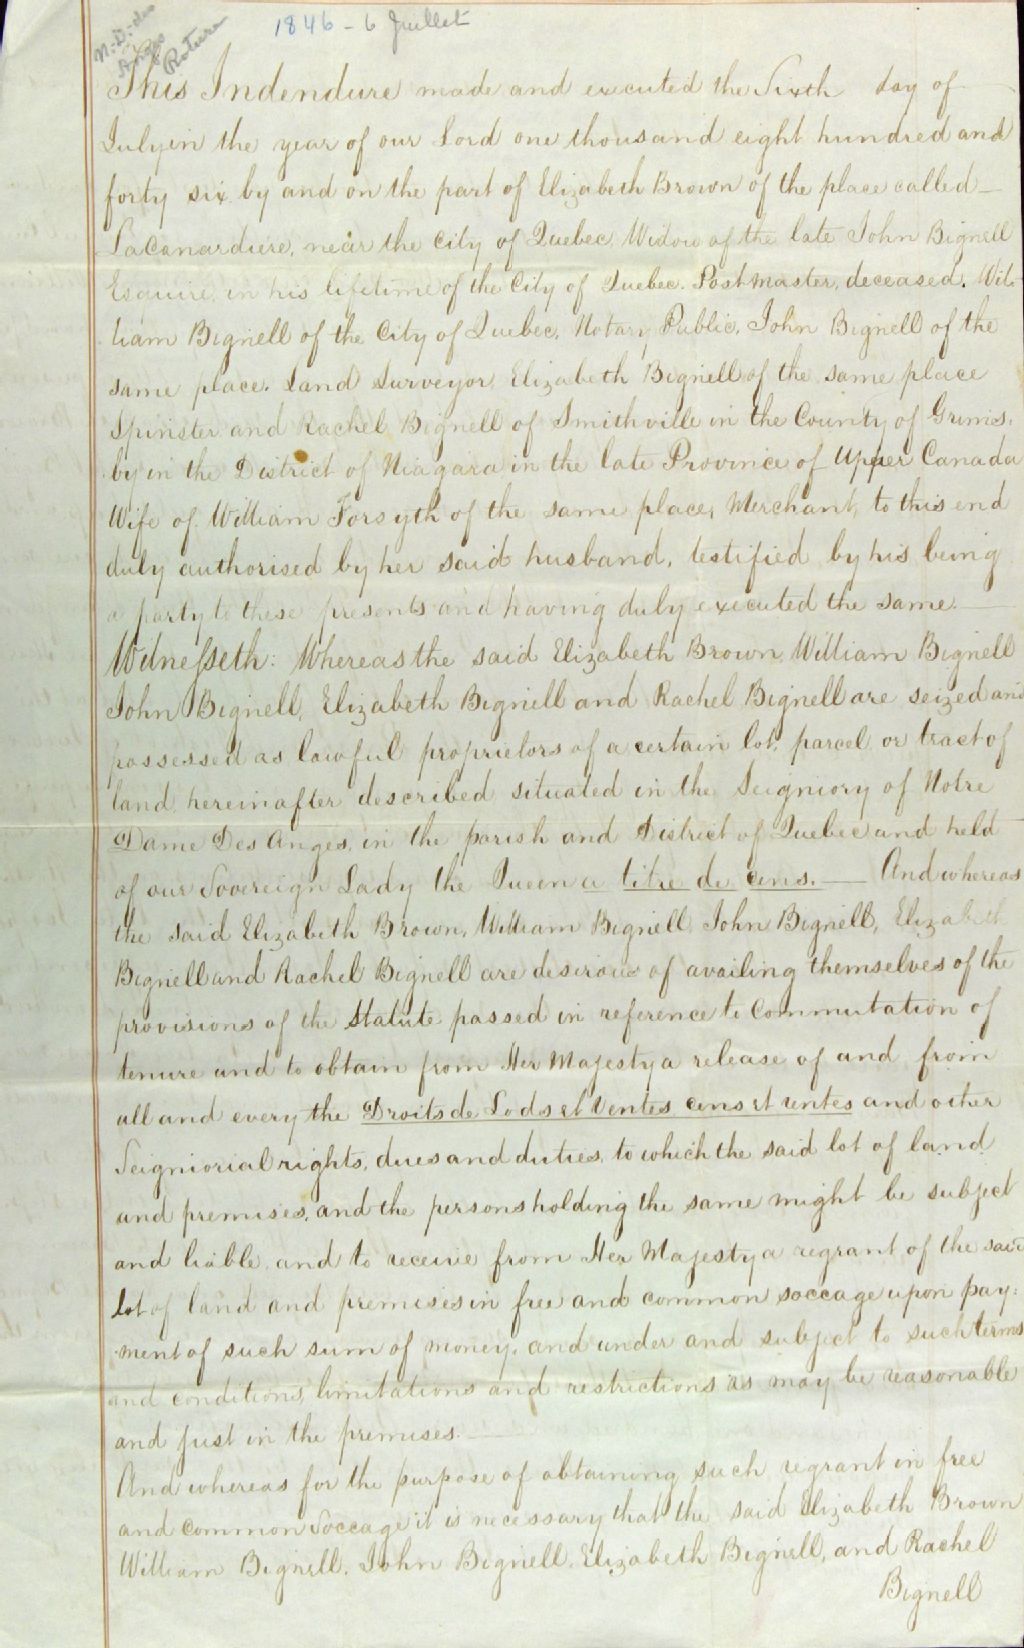 1846 - 6 Juillet
N.D. des
Anges
Roture
This Indendure made and executed the Sixth day of
July in the year of our Lord one thousand eight hundred and
forty six by and on the part of Elizabeth Brown of the place called
LaCanardiere, near the City of Quebec, Widow of the late John Bignell
Esquire, in his lifetime of the City of Quebec. Postmaster, deceased. Wil-
liam Bignell of the City of Quebec, Notary Public, John Bignell of the
same place. Land Surveyor, Elizabeth Bignell of the same place
Spinster and Rachel Bignell of Smithville in the County of Grims.
by in the District of Niagara in the late Province of Upper Canada
Wife of William Forsyth of the same place, Merchant, to this end
duly authorised by her said husband, testified by his being
a party to these presents and having duly executed the same.
Witnesseth: Whereas the said Elizabeth Brown, William Bignell
John Bignell, Elizabeth Bignell and Rachel Bignell are seized and
possessed as lawful proprietors of a certain lot, parcel or tract of
land hereinafter described situated in the Seigniory of Notre
Dame Des Anges, in the parish and District of Quebec and held
of our Sovereign Lady the Queen a titre de cens. — And whereas
the said Elizabeth Brown, William Bignell, John Bignell, Elizabeth
Bignell and Rachel Bignell are desirous of availing themselves of the
provisions of the Statute passed in reference to Commutation of
tenure and to obtain from Her Majesty a release of and from
all and every the Droits de Lods et Ventes, cens et rentes and other
Seigniorial rights, dues and duties, to which the said lot of land
and premises, and the persons holding the same might be subject
and liable, and to receive from Her Majesty a regrant of the said
lot of land and premises in free and common soccage upon pay:
ment of such sum of money, and under and subject to such terms
and conditions, limitations and restrictions as may be reasonable
and just in the premises. —
And whereas for the purpose of obtaining such regrant in free
and common Soccage it is necessary that the said Elizabeth Brown
William Bignell, John Bignell, Elizabeth Bignell, and Rachel
Bignell